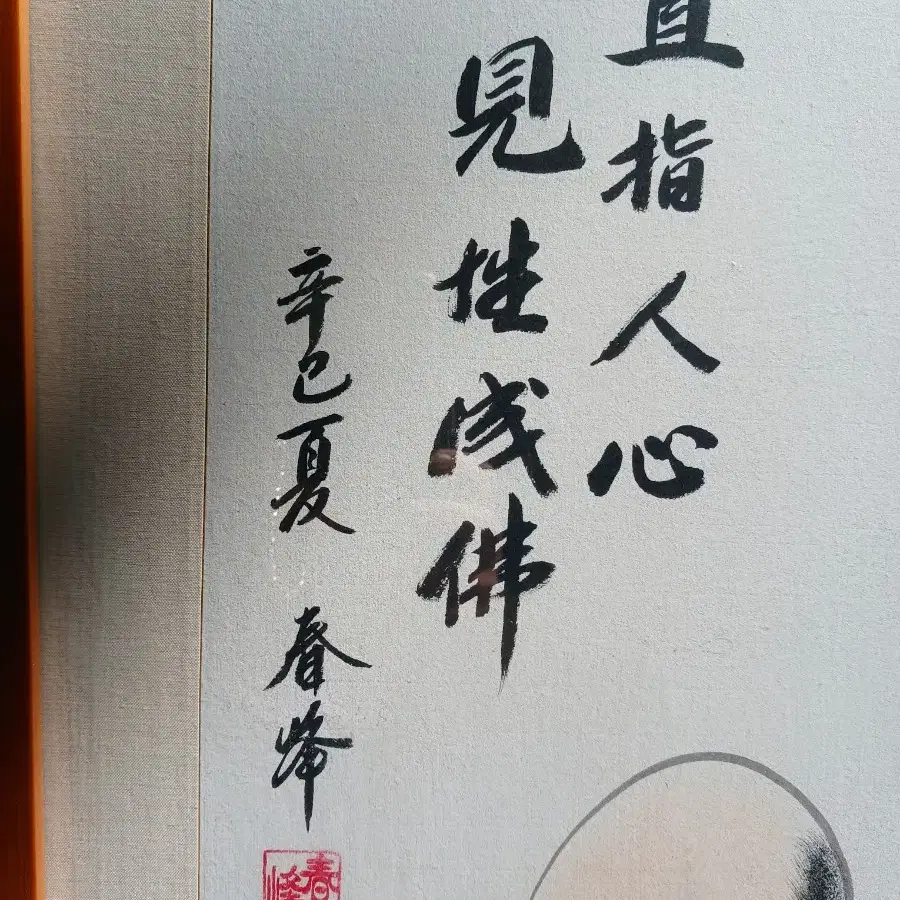 直指人心
見性成佛
辛巳夏 春峰
春峰